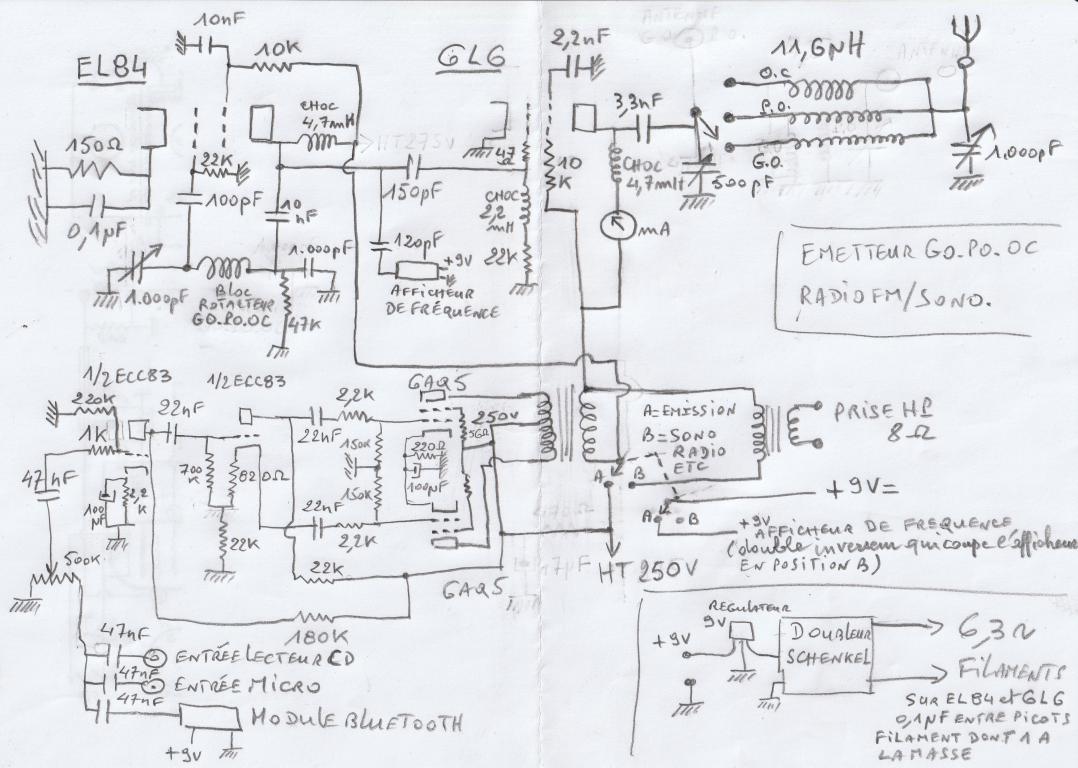 10nF
10K
EL84
6L6
2,2nF
11,6µH
O.C
P.O.
G.O.
CHOC
4,7mH
HT275V
3,3nF
150Ω
22K
100pF
10
nF
150pF
4,7
Ω
10
K
CHOC
4,7mH
500pF
1.000pF
mA
0,1µF
CHOC
2,2
mH
22K
120pF
+9V
AFFICHEUR
DE FRÉQUENCE
1.000pF
1.000pF
BLOC
ROTACTEUR
GO.PO.OC
47K
EMETTEUR GO.PO.OC
RADIO FM/SONO.
1/2ECC83
1/2ECC83
6AQ5
220K
22nF
1K
2,2K
22nF
150K
150K
250V
56Ω
220Ω
100µF
A=EMISSION
B=SONO
RADIO
ETC
PRISE HP
8Ω
47nF
100
µF
2,2
K
700
K
820Ω
22K
22nF
2,2K
22K
A
B
+9V=
A
B
+9V
AFFICHEUR DE FREQUENCE
(double inverseur qui coupe l'afficheur
EN POSITION B)
HT 250V
6AQ5
500K
180K
47nF
ENTRÉE LECTEUR CD
47nF
ENTRÉE MICRO
47nF
MODULE BLUETOOTH
+9V
REGULATEUR
9V
+9V
DOUBLEUR
SCHENKEL
6,3~
FILAMENTS
SUR EL84 et 6L6
0,1µF ENTRE PICOTS
FILAMENT DONT 1 A
LA MASSE